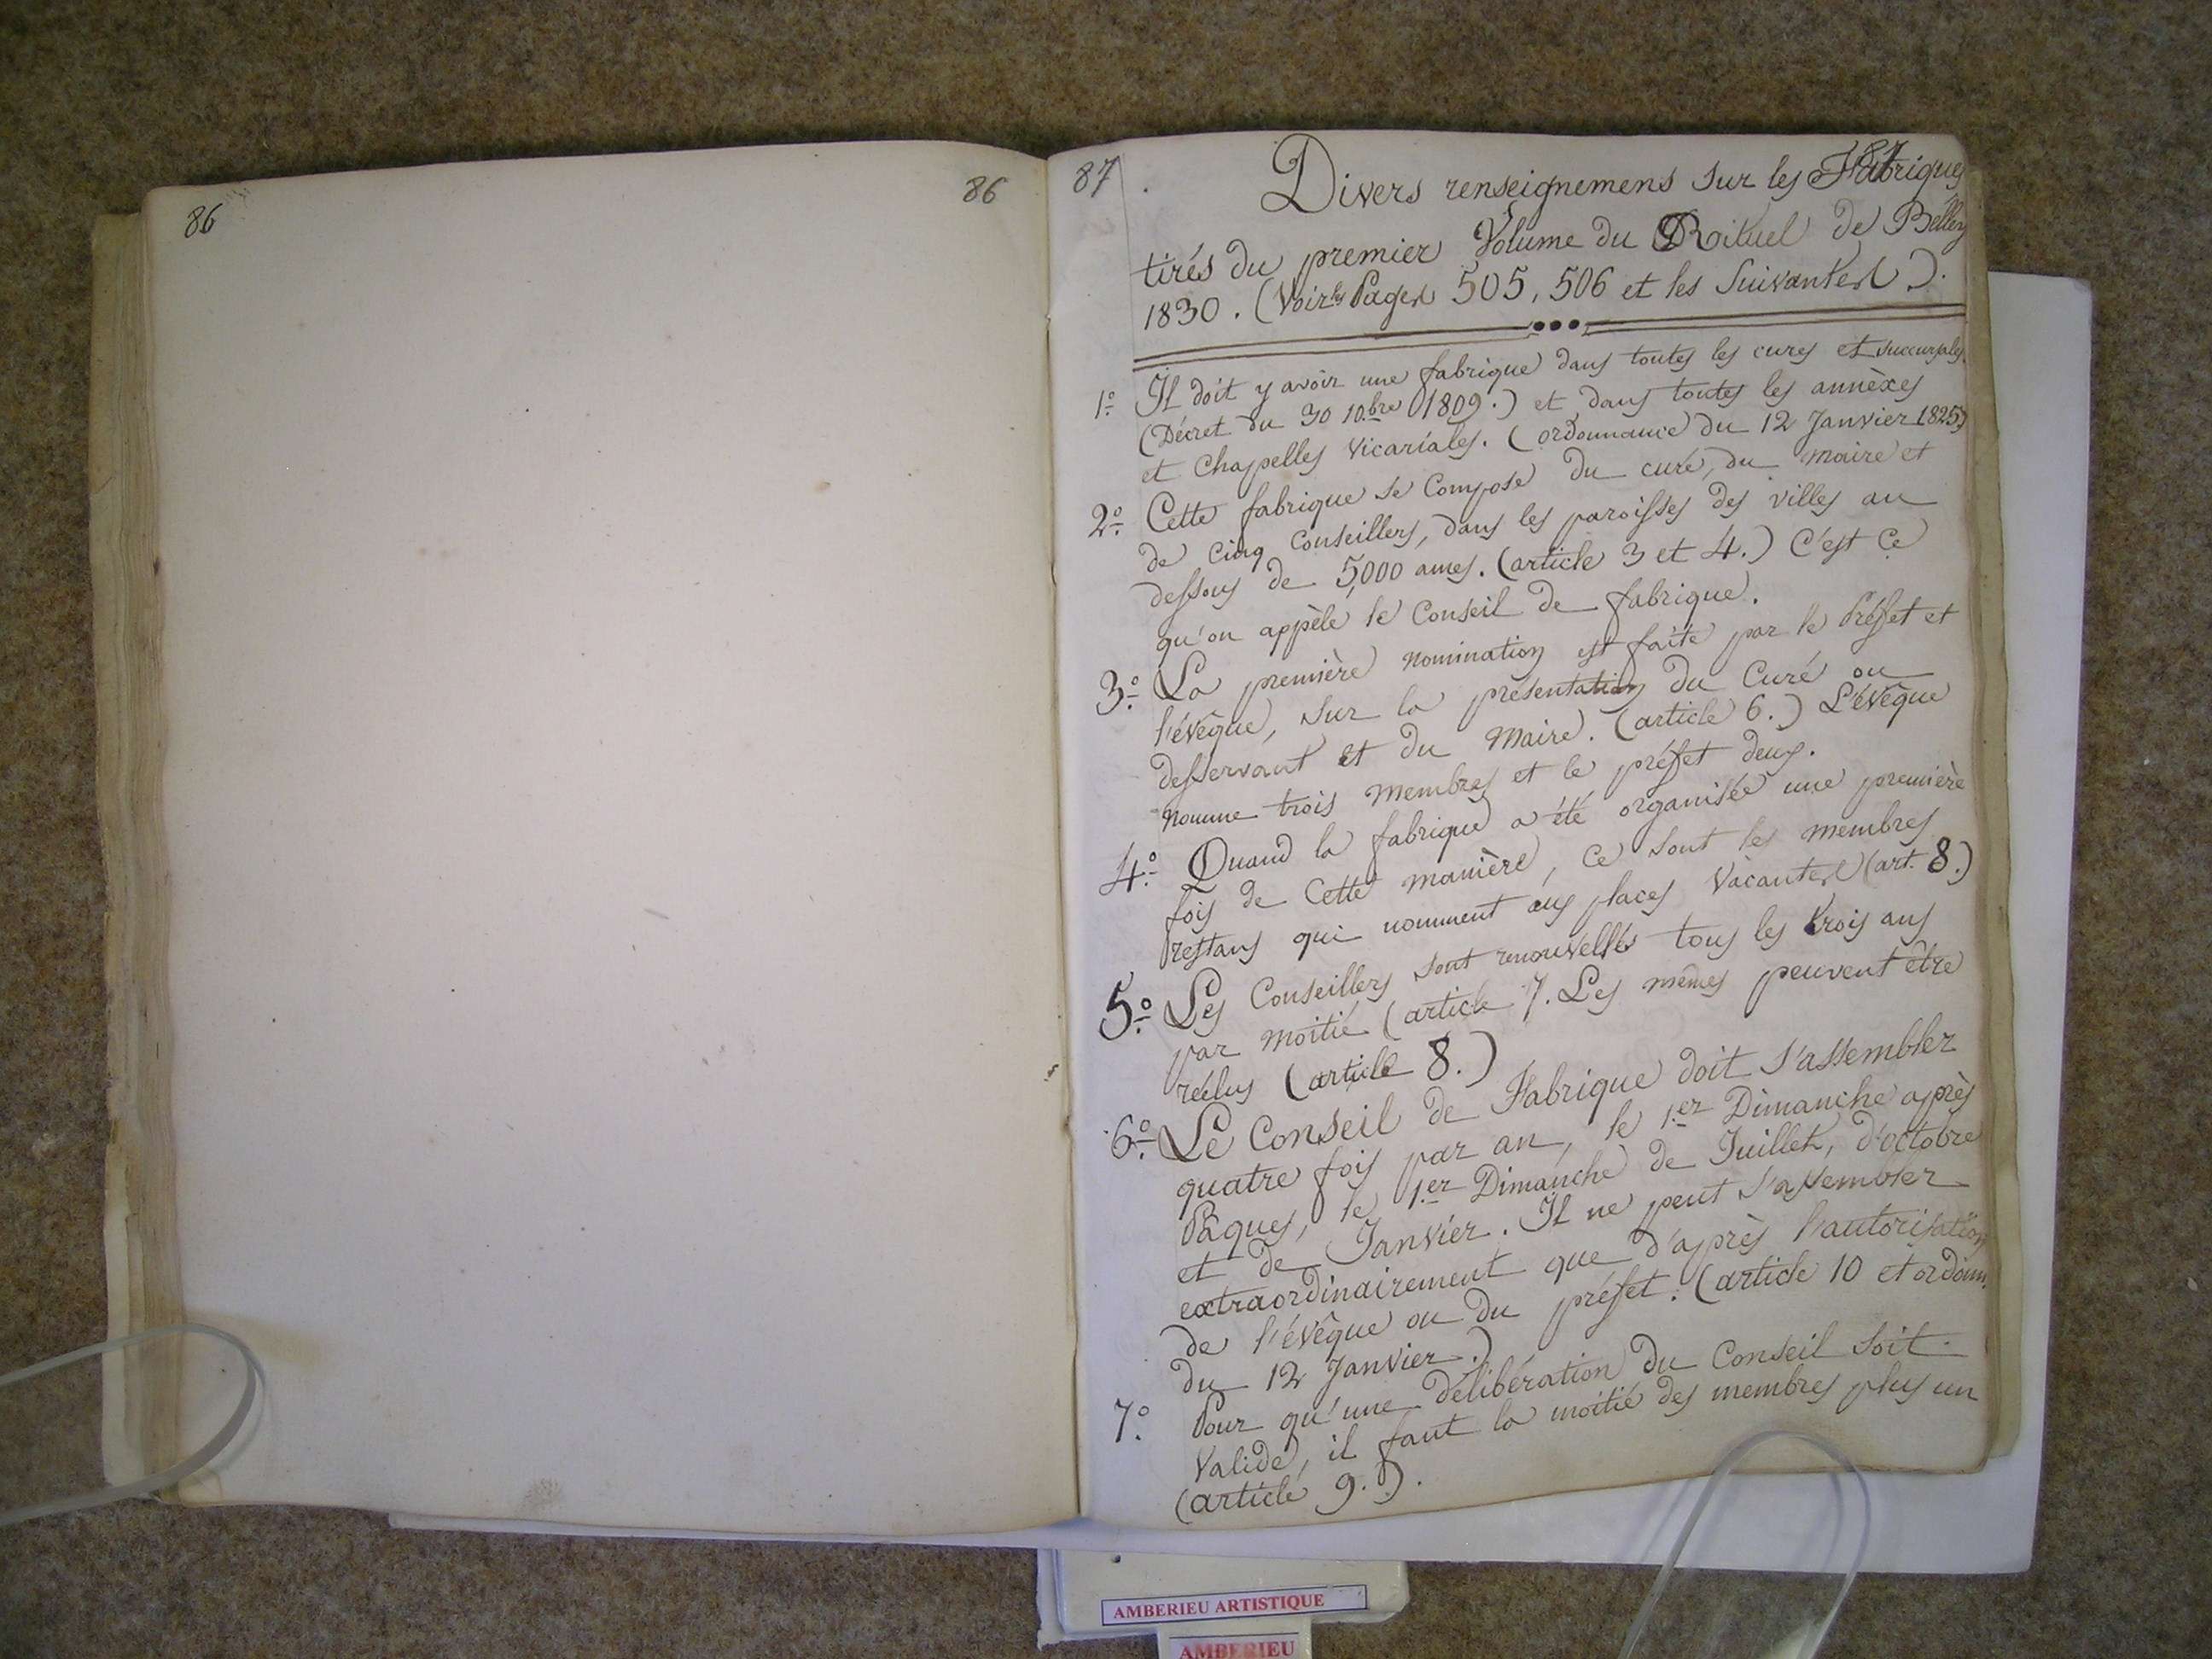 86
86
87
87
Divers renseignemens sur les Fabriques
tirés du premier Volume du Rituel de Belley
1830. (Voir les Pages 505, 506 et les Suivantes).
1.º Il doit y avoir une fabrique dans toutes les cures et succursales
(Décret du 30 10.bre 1809.) et dans toutes les annèxes
et Chapelles vicariales. (ordonnance du 12 Janvier 1825)
2.º Cette fabrique se compose du curé, du maire et
de cinq conseillers, dans les paroisses des villes au
dessous de 5,000 ames. (article 3 et 4.) C'est ce
qu'on appèle le Conseil de fabrique.
3.º La première nomination est faite par le Préfet et
l'évêque, sur la présentation du Curé ou
desservant et du Maire. (article 6.) L'évêque
nomme trois membres et le préfet deux.
4.º Quand la fabrique a été organisée une première
fois de cette manière, ce sont les membres
restans qui nomment aux places vacantes (art. 8.)
5.º Les Conseillers sont renouvellés tous les trois ans
par moitié (article 7. Les mêmes peuvent être
réélus (article 8.)
6.º Le Conseil de Fabrique doit s'assembler
quatre fois par an, le 1.er Dimanche après
Pâques, le 1.er Dimanche de Juillet, d'octobre
et de Janvier. Il ne peut s'assembler
extraordinairement que d'après l'autorisation
de l'évêque ou du préfet. (article 10 et ordonn.
du 12 Janvier.)
7.º Pour qu'une délibération du Conseil soit
valide, il faut la moitié des membres plus un
(article 9.).
AMBERIEU ARTISTIQUE
AMBERIEU